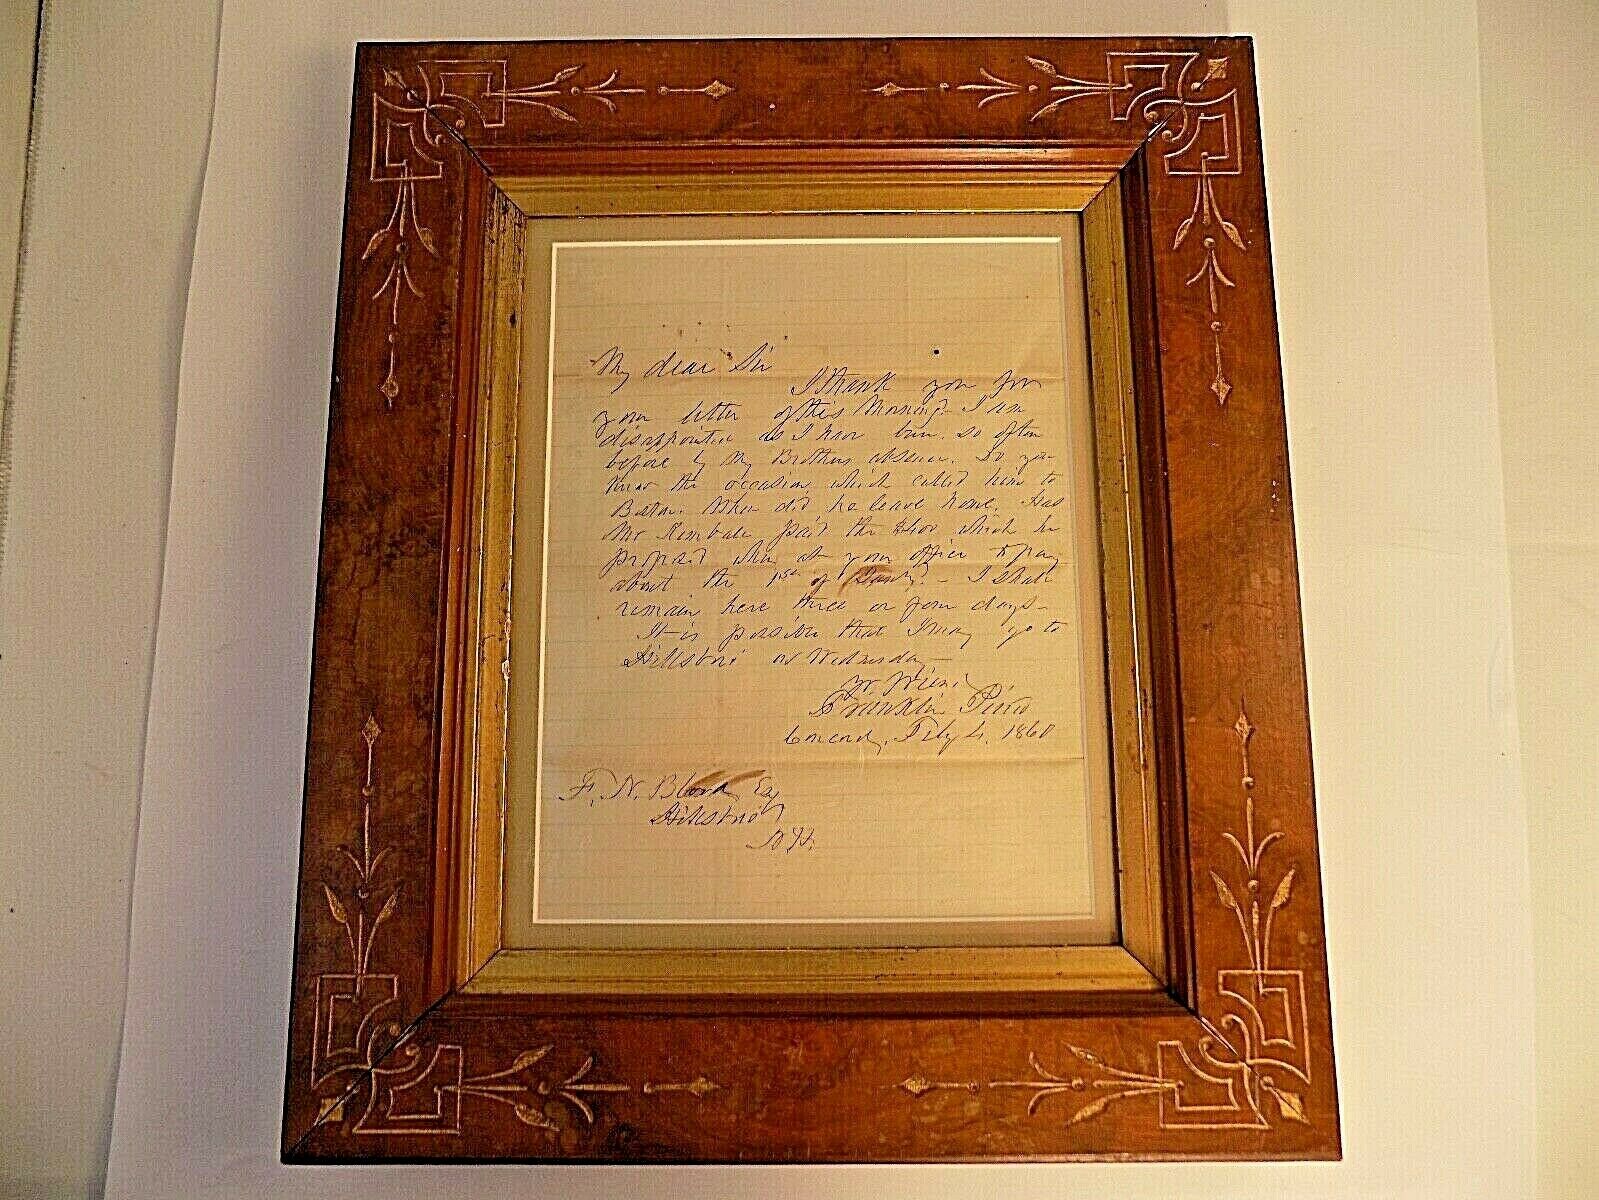 My dear Sir
I thank you for
your letter of this Morning - I am
disappointed as I have been, so often
before by My Brothers absence. Do you
know the occasion which called him to
Boston. When did he leave home. Has
Mr Kimball paid the $100 which he
proposed when at your office to pay
about the 1st of - I shall
remain here three or four days -
It is possible that I may go to
Hillsboro' on Wednesday -
Yr.
Franklin Pierce
Concord, Feby 4, 1860
F. N. Blood Esq
Hillsboro'
N H.